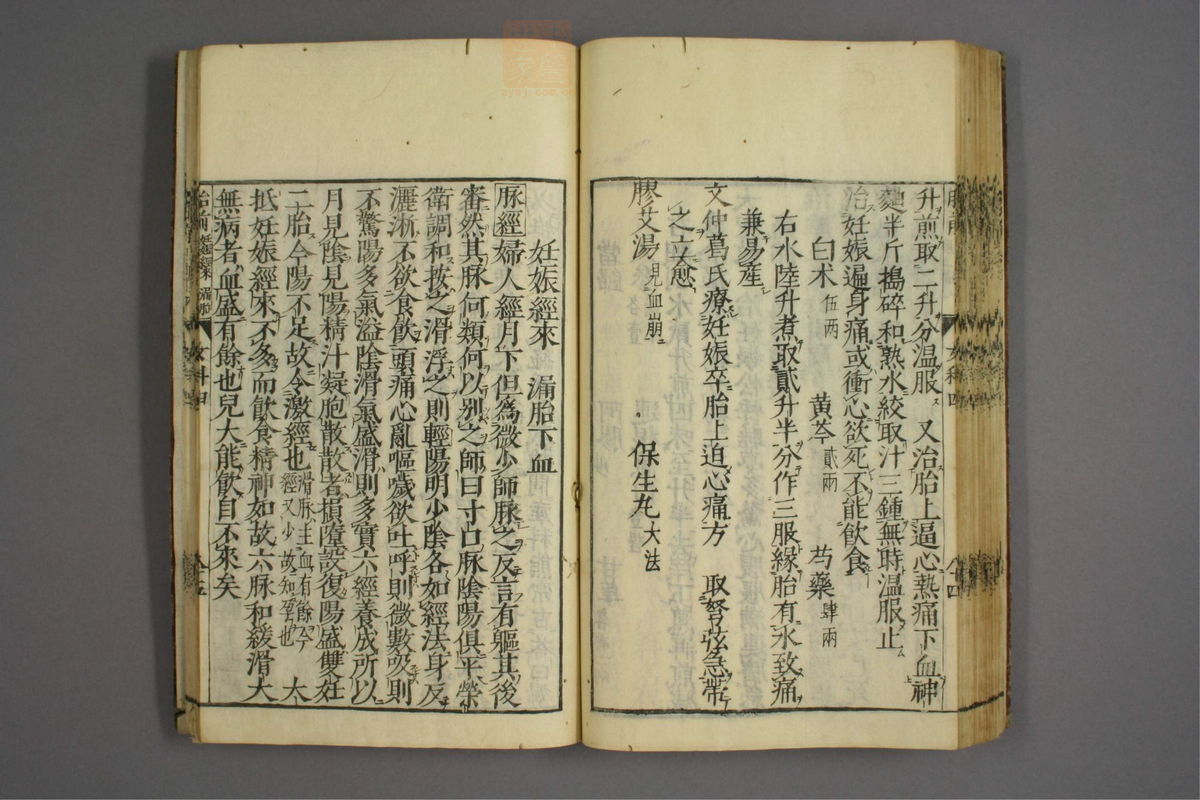 升煎取二升分温服　又治胎上逼心熱痛下血神
麯半斤搗碎和熟水絞取汁三鍾無時温服止
治妊娠遍身痛或衝心欲死不能飲食
白术伍兩　黄芩貳兩　芍藥肆兩
右水陸升煮取貳升半分作三服縁胎有水致痛
兼易産
文仲葛氏療妊娠卒胎上迫心痛方　取弩弦急帶
之立愈
膠艾湯見血崩　保生丸大法
妊娠經來　漏胎下血
脉經婦人經月下但為微少師脉之反言有軀其後
審然其脉何類何以别之師曰寸口脉陰陽俱平榮
衛調和按之滑浮之則輕陽明少陰各如經法身反
灑淅不欲食飲頭痛心亂嘔噦欲吐呼則微數吸則
不驚陽多氣溢陰滑氣盛滑則多實六經養成所以
月見陰見陽精汁凝胞散散者損墮設復陽盛雙妊
二胎今陽不足故令激經也滑脉主血有餘今經又少故知孕也　大
抵妊娠經來不多而飲食精神如故六脉和緩滑大
無病者血盛有餘也兒大能飲自不來矣
女科四